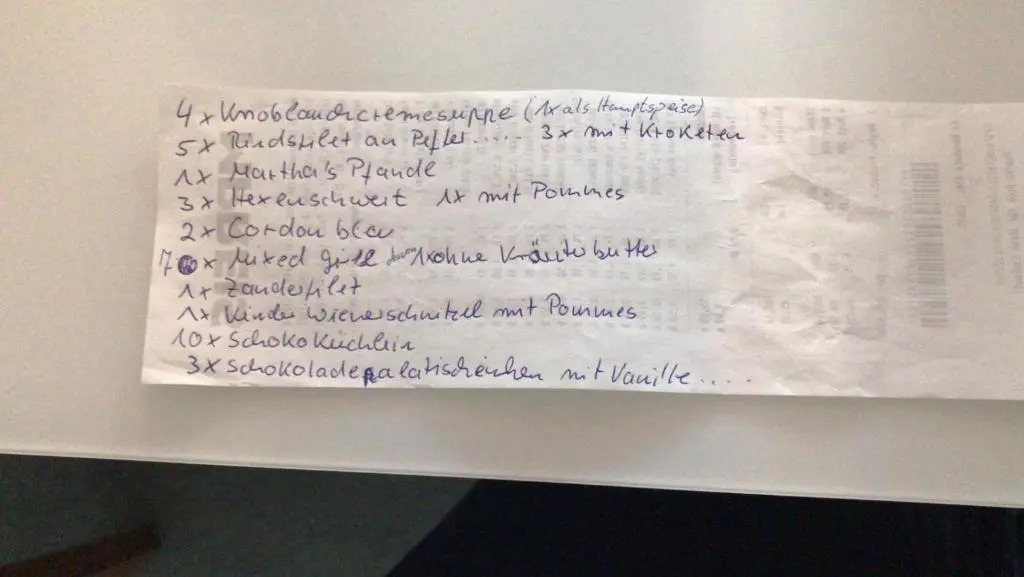 4x Knoblauchcremesuppe (1x als Hauptspeise)
5x Rindsfilet an Pfeffer..... 3x mit Kroketen
1x Martha's Pfandl
3x Hexenschwert 1x mit Pommes
2x Cordon bleu
7x Mixed grill 1x ohne Kräuterbutter
1x Zanderfilet
1x Kinder Wienerschnitzel mit Pommes
10x Schoko Küchlein
3x Schokoladepalatschinken mit Vanille....